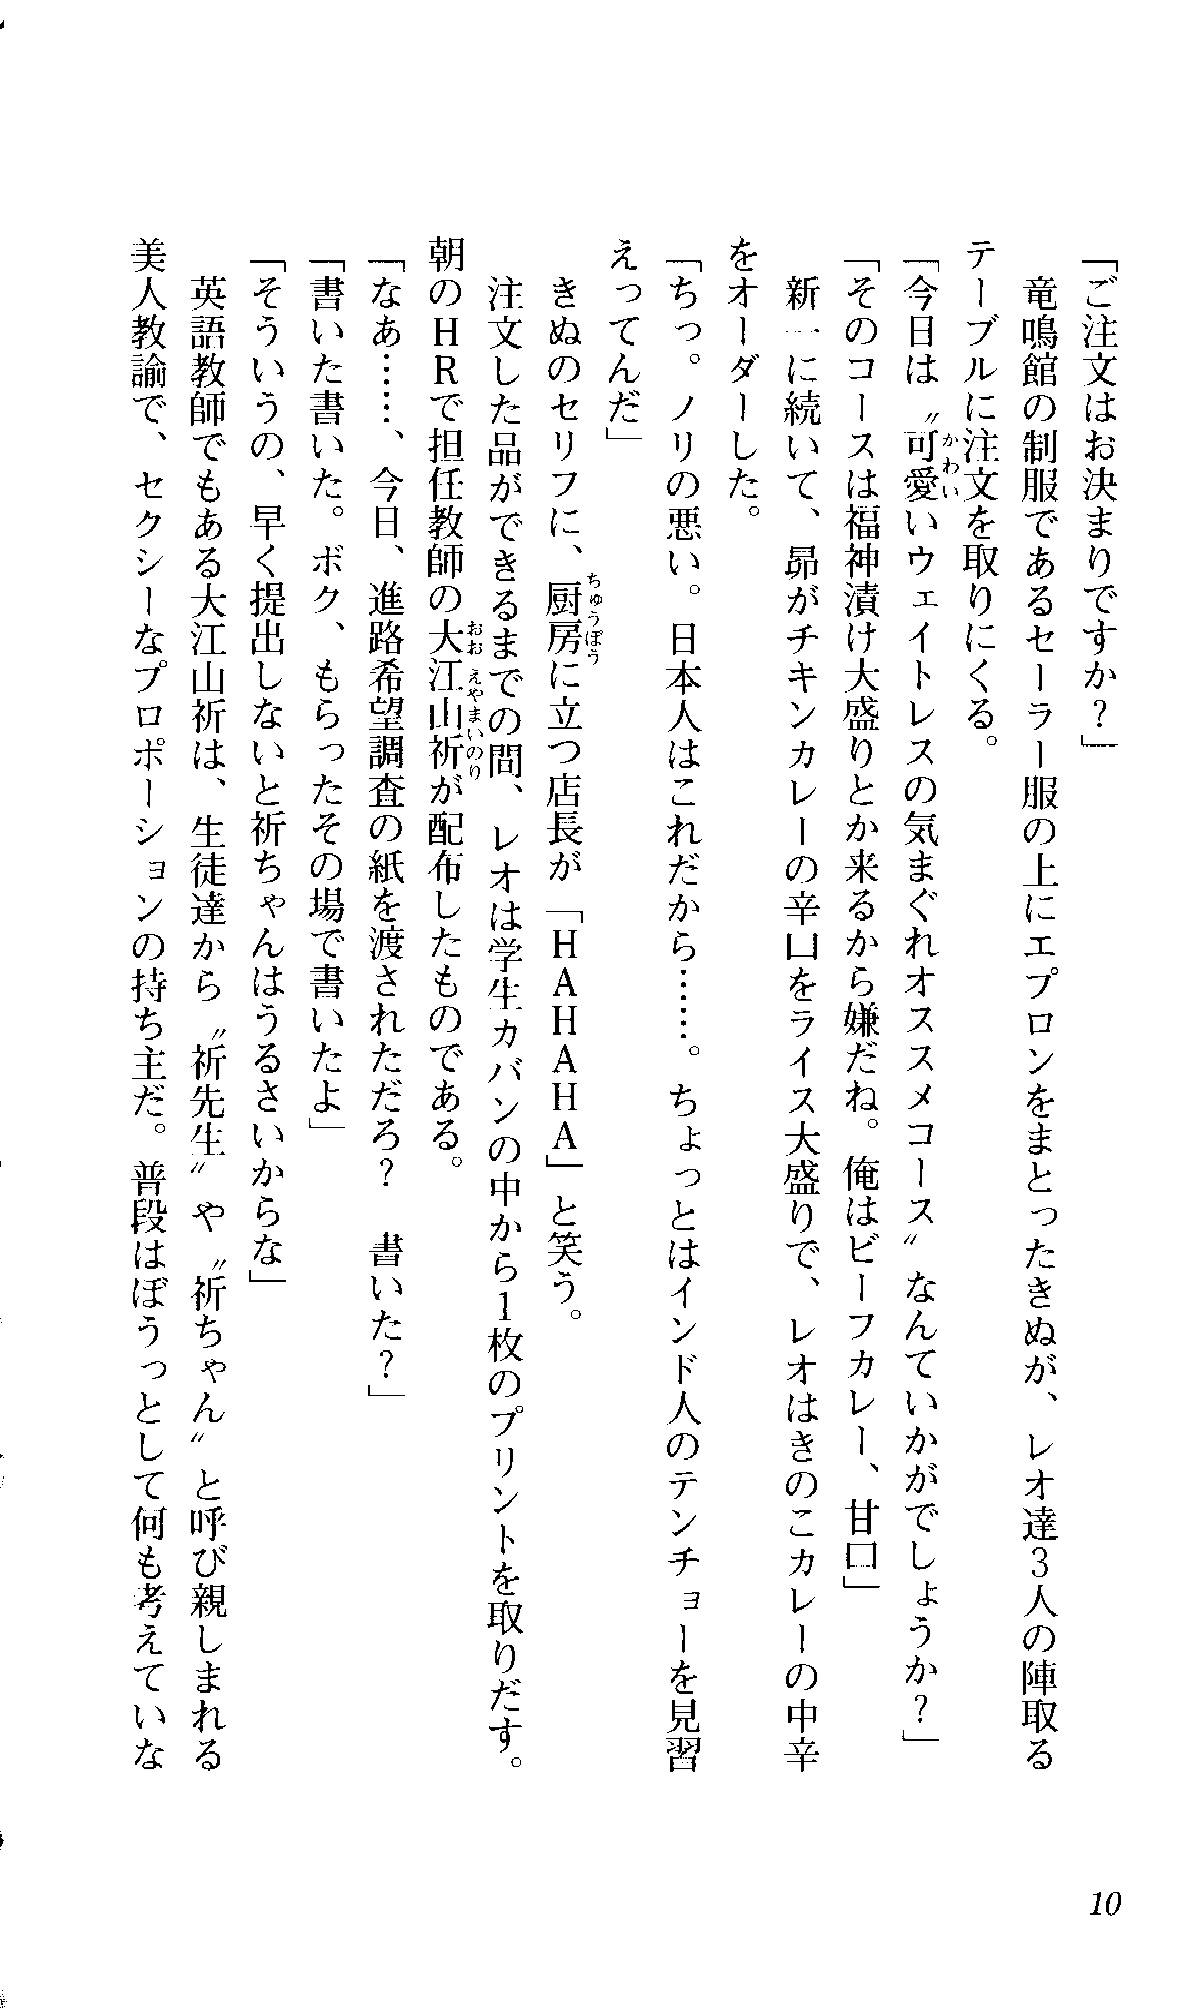 「ご注文はお決まりですか？」
　竜鳴館の制服であるセーラー服の上にエプロンをまとったきぬが、レオ達３人の陣取る
テーブルに注文を取りにくる。
「今日は〝可愛いウェイトレスの気まぐれオススメコース〟なんていかがでしょうか？」
「そのコースは福神漬け大盛りとか来るから嫌だね。俺はビーフカレー、甘口」
　新一に続いて、昴がチキンカレーの辛口をライス大盛りで、レオはきのこカレーの中辛
をオーダーした。
「ちっ。ノリの悪い。日本人はこれだから……。ちょっとはインド人のテンチョーを見習
えってんだ」
　きぬのセリフに、厨房に立つ店長が「ＨＡＨＡＨＡ」と笑う。
　注文した品ができるまでの間、レオは学生カバンの中から１枚のプリントを取りだす。
朝のＨＲで担任教師の大江山祈が配布したものである。
「なあ……、今日、進路希望調査の紙を渡されただろ？　書いた？」
「書いた書いた。ボク、もらったその場で書いたよ」
「そういうの、早く提出しないと祈ちゃんはうるさいからな」
　英語教師でもある大江山祈は、生徒達から〝祈先生〟や〝祈ちゃん〟と呼び親しまれる
美人教諭で、セクシーなプロポーションの持ち主だ。普段はぼうっとして何も考えていな
10